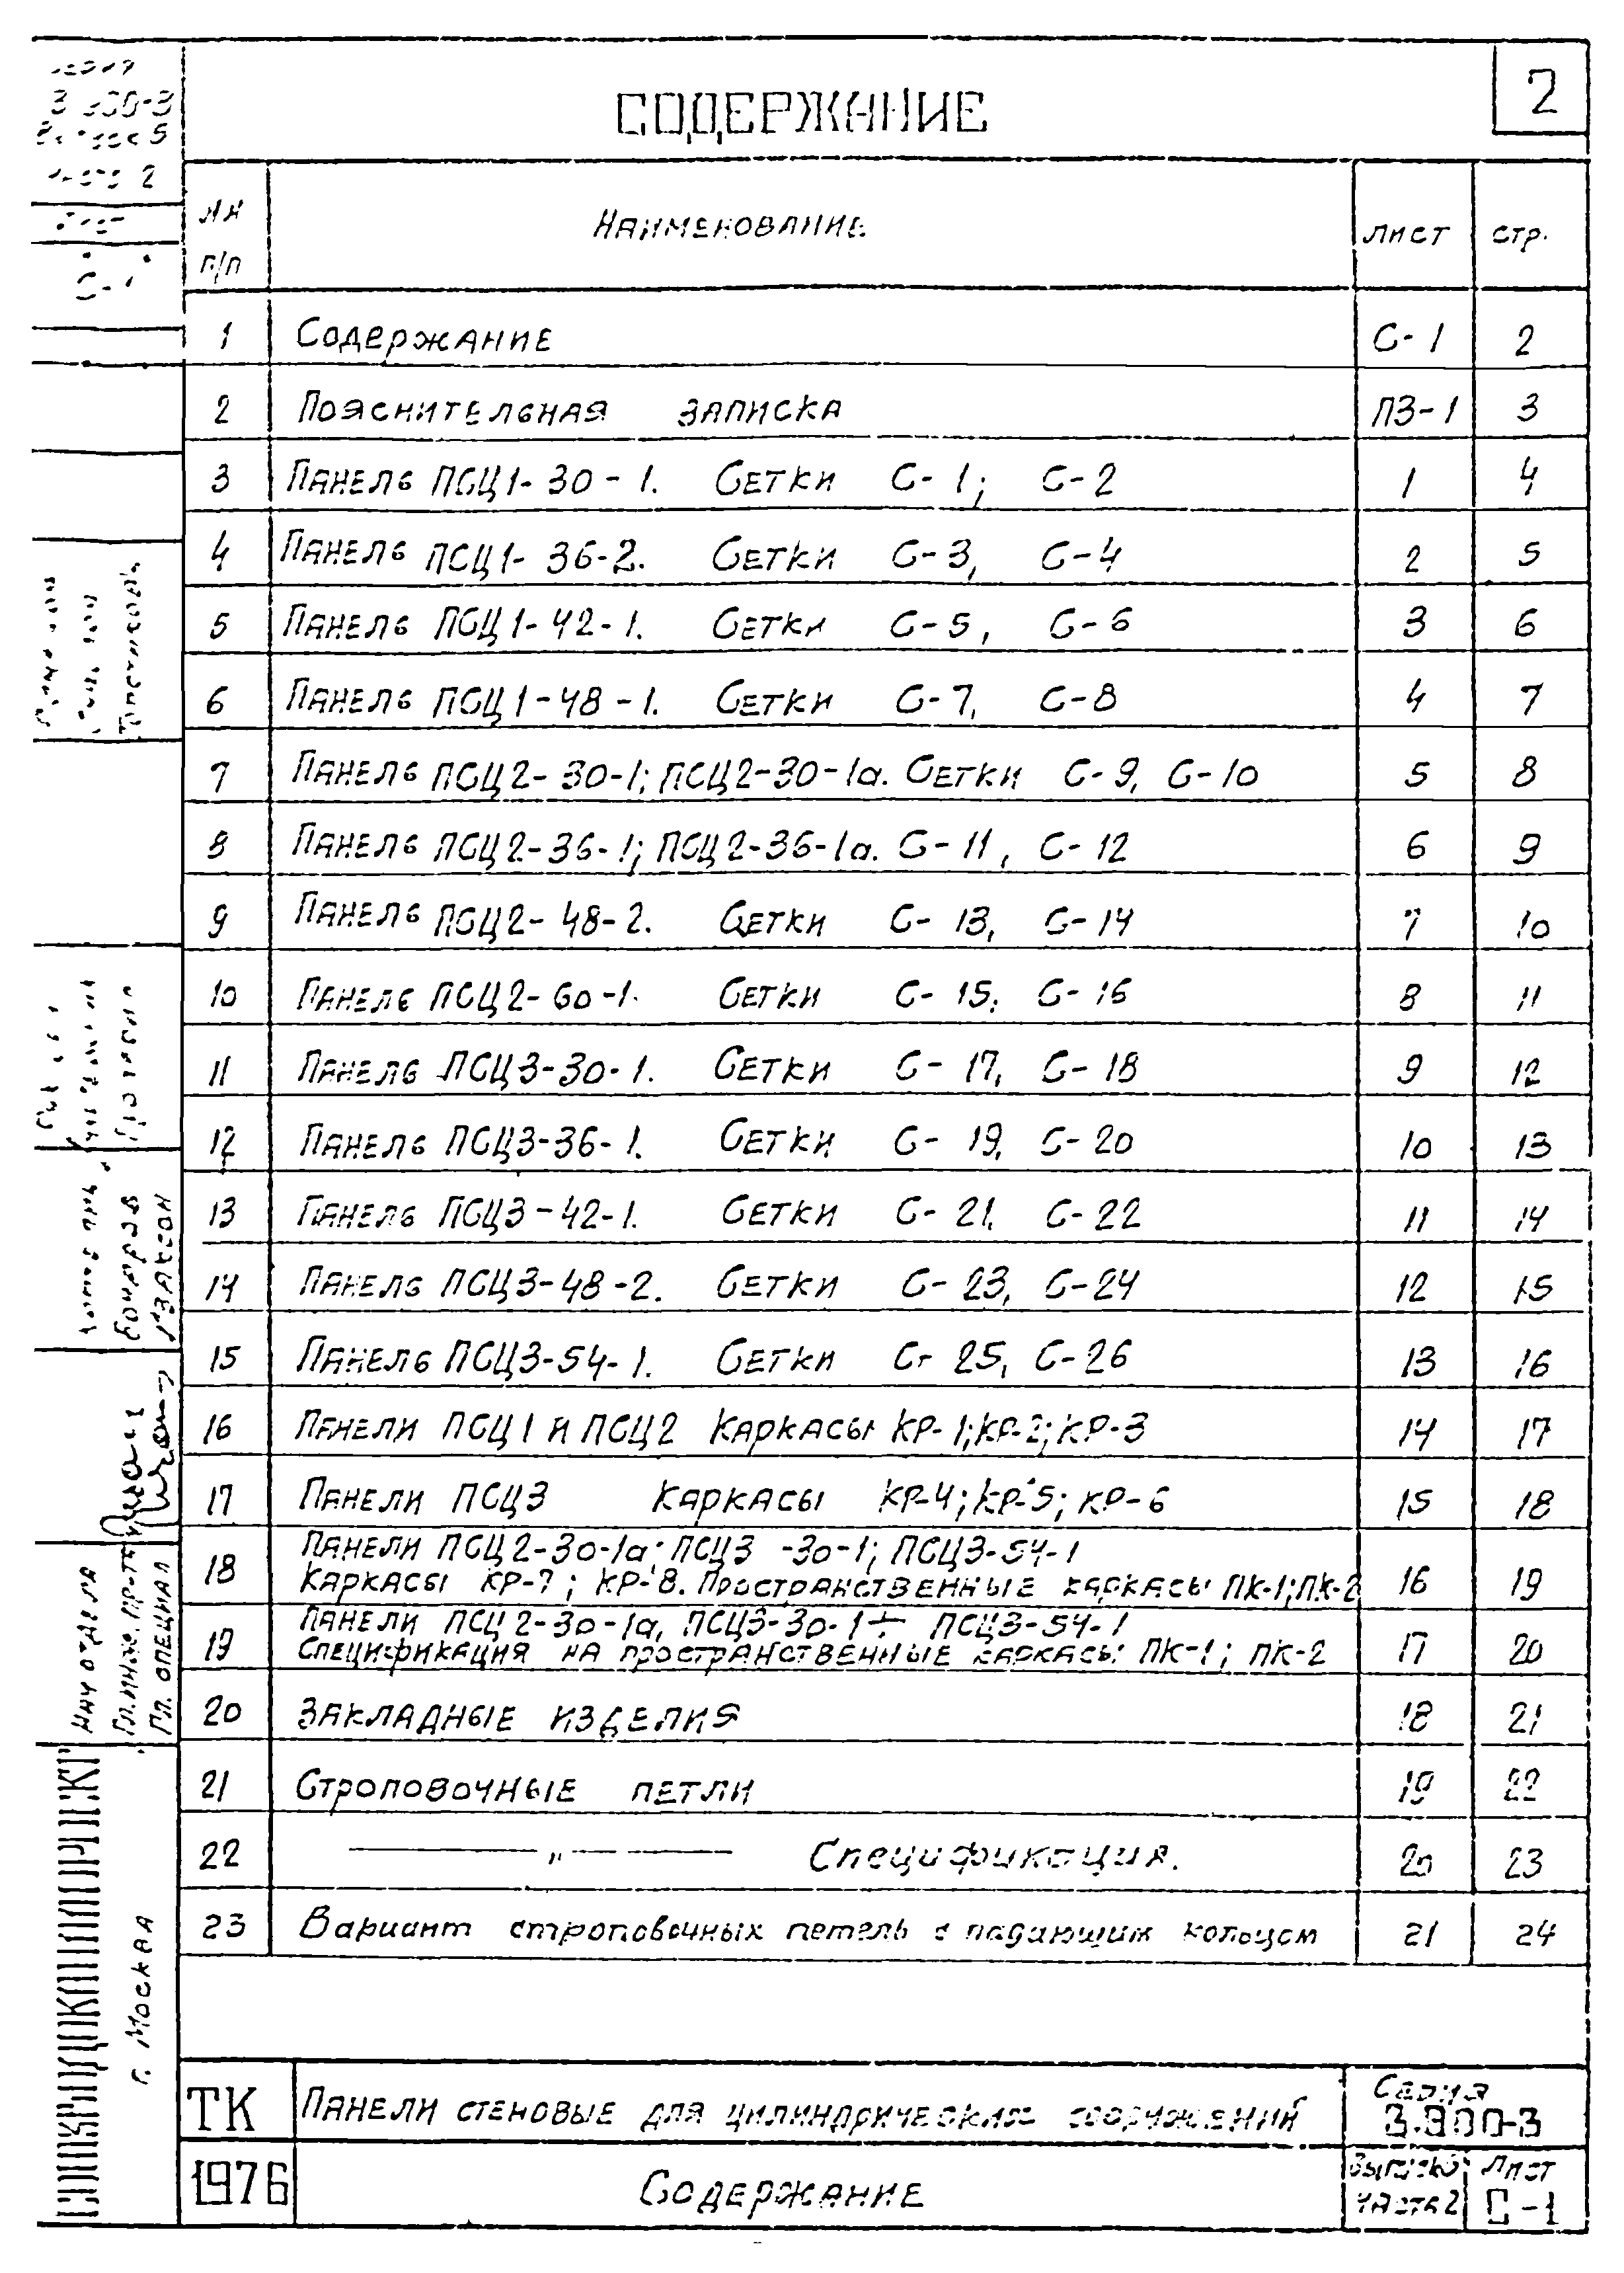 2
СОДЕРЖАНИЕ
NN п/п НАИМЕНОВАНИЕ лист стр.
1 Содержание С-1 2
2 Пояснительная записка ПЗ-1 3
3 Панель ПСЦ1-30-1. Сетки С-1; С-2 1 4
4 Панель ПСЦ1-36-2. Сетки С-3, С-4 2 5
5 Панель ПСЦ1-42-1. Сетки С-5, С-6 3 6
6 Панель ПСЦ1-48-1. Сетки С-7, С-8 4 7
7 Панель ПСЦ2-30-1; ПСЦ2-30-1а. Сетки С-9, С-10 5 8
8 Панель ПСЦ2-36-1; ПСЦ2-36-1а. С-11, С-12 6 9
9 Панель ПСЦ2-48-2. Сетки С-13, С-14 7 10
10 Панель ПСЦ2-60-1. Сетки С-15, С-16 8 11
11 Панель ПСЦ3-30-1. Сетки С-17, С-18 9 12
12 Панель ПСЦ3-36-1. Сетки С-19, С-20 10 13
13 Панель ПСЦ3-42-1. Сетки С-21, С-22 11 14
14 Панель ПСЦ3-48-2. Сетки С-23, С-24 12 15
15 Панель ПСЦ3-54-1. Сетки С-25, С-26 13 16
16 Панели ПСЦ1 и ПСЦ2 Каркасы КР-1; КР-2; КР-3 14 17
17 Панели ПСЦ3 Каркасы КР-4; КР-5; КР-6 15 18
18 Панели ПСЦ2-30-1а; ПСЦ3-30-1; ПСЦ3-54-1
Каркасы КР-7; КР-8. Пространственные каркасы ПК-1; ПК-2 16 19
19 Панели ПСЦ2-30-1а, ПСЦ3-30-1 ÷ ПСЦ3-54-1
Спецификация на пространственные каркасы ПК-1; ПК-2 17 20
20 Закладные изделия 18 21
21 Строповочные петли 19 22
22 — " — Спецификация. 20 23
23 Вариант строповочных петель с падающим кольцом 21 24
ТК Панели стеновые для цилиндрических сооружений Серия
3.900-3
1976 Содержание Выпуск 5 Лист
часть 2 С-1
Нач отдела
Гл. инж. пр-та
Гл. специал
Изаксон
СОЮЗВОДОКАНАЛПРОЕКТ
г. Москва